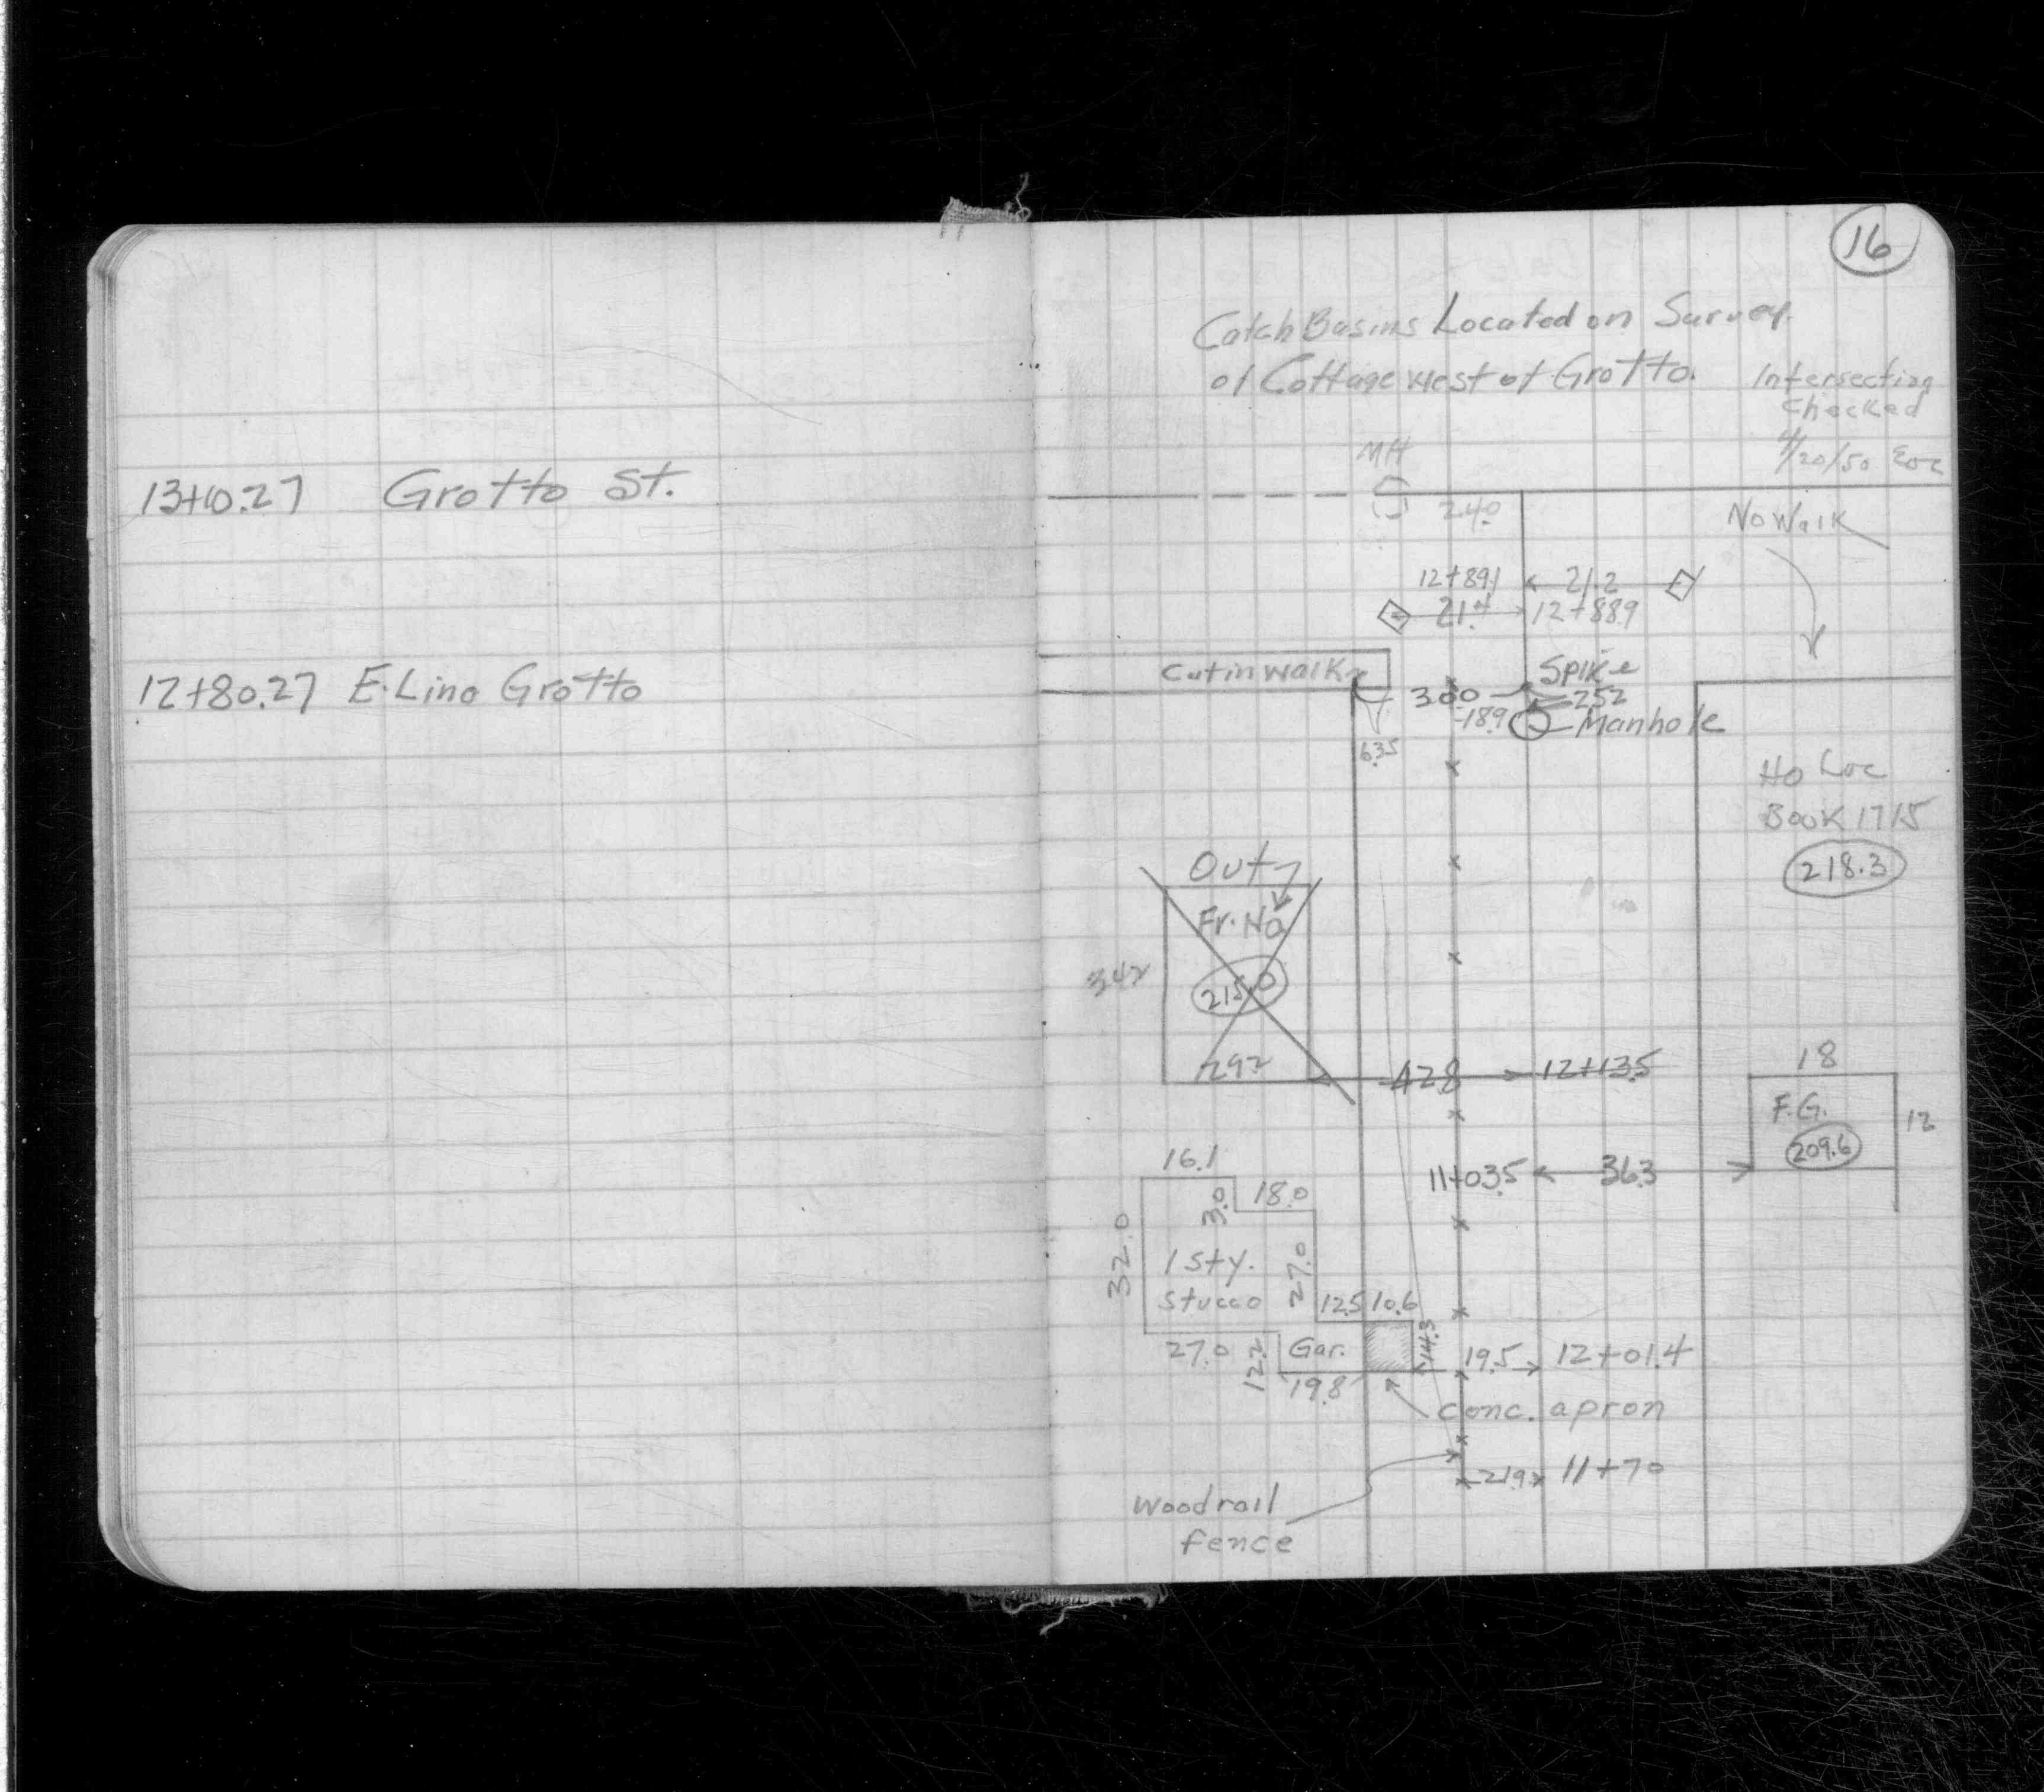 13+10.27 Grotto St.
12+80.27 E. Line Grotto
16
Catch Basins Located on Survey
of Cottage West of Grotto.
Intersecting
Checked
4/20/50
MH
24.0
No Walk
12+89.1
21.2
21.4
12+88.9
Cut in walk
Spike
30.0
25.2
18.9
Manhole
6.35
Ho Loc
Book 1715
218.3
Out
Fr. Ho
215.0
34.2
29.2
42.8
12+13.5
18
F.G.
209.6
12
11+03.5
36.3
16.1
3.0
18.0
32.0
1 Sty.
Stucco
27.0
12.5
10.6
14.3
27.0
12.2
Gar.
19.8
19.5
12+01.4
Conc. apron
21.9
11+70
Wood rail
fence